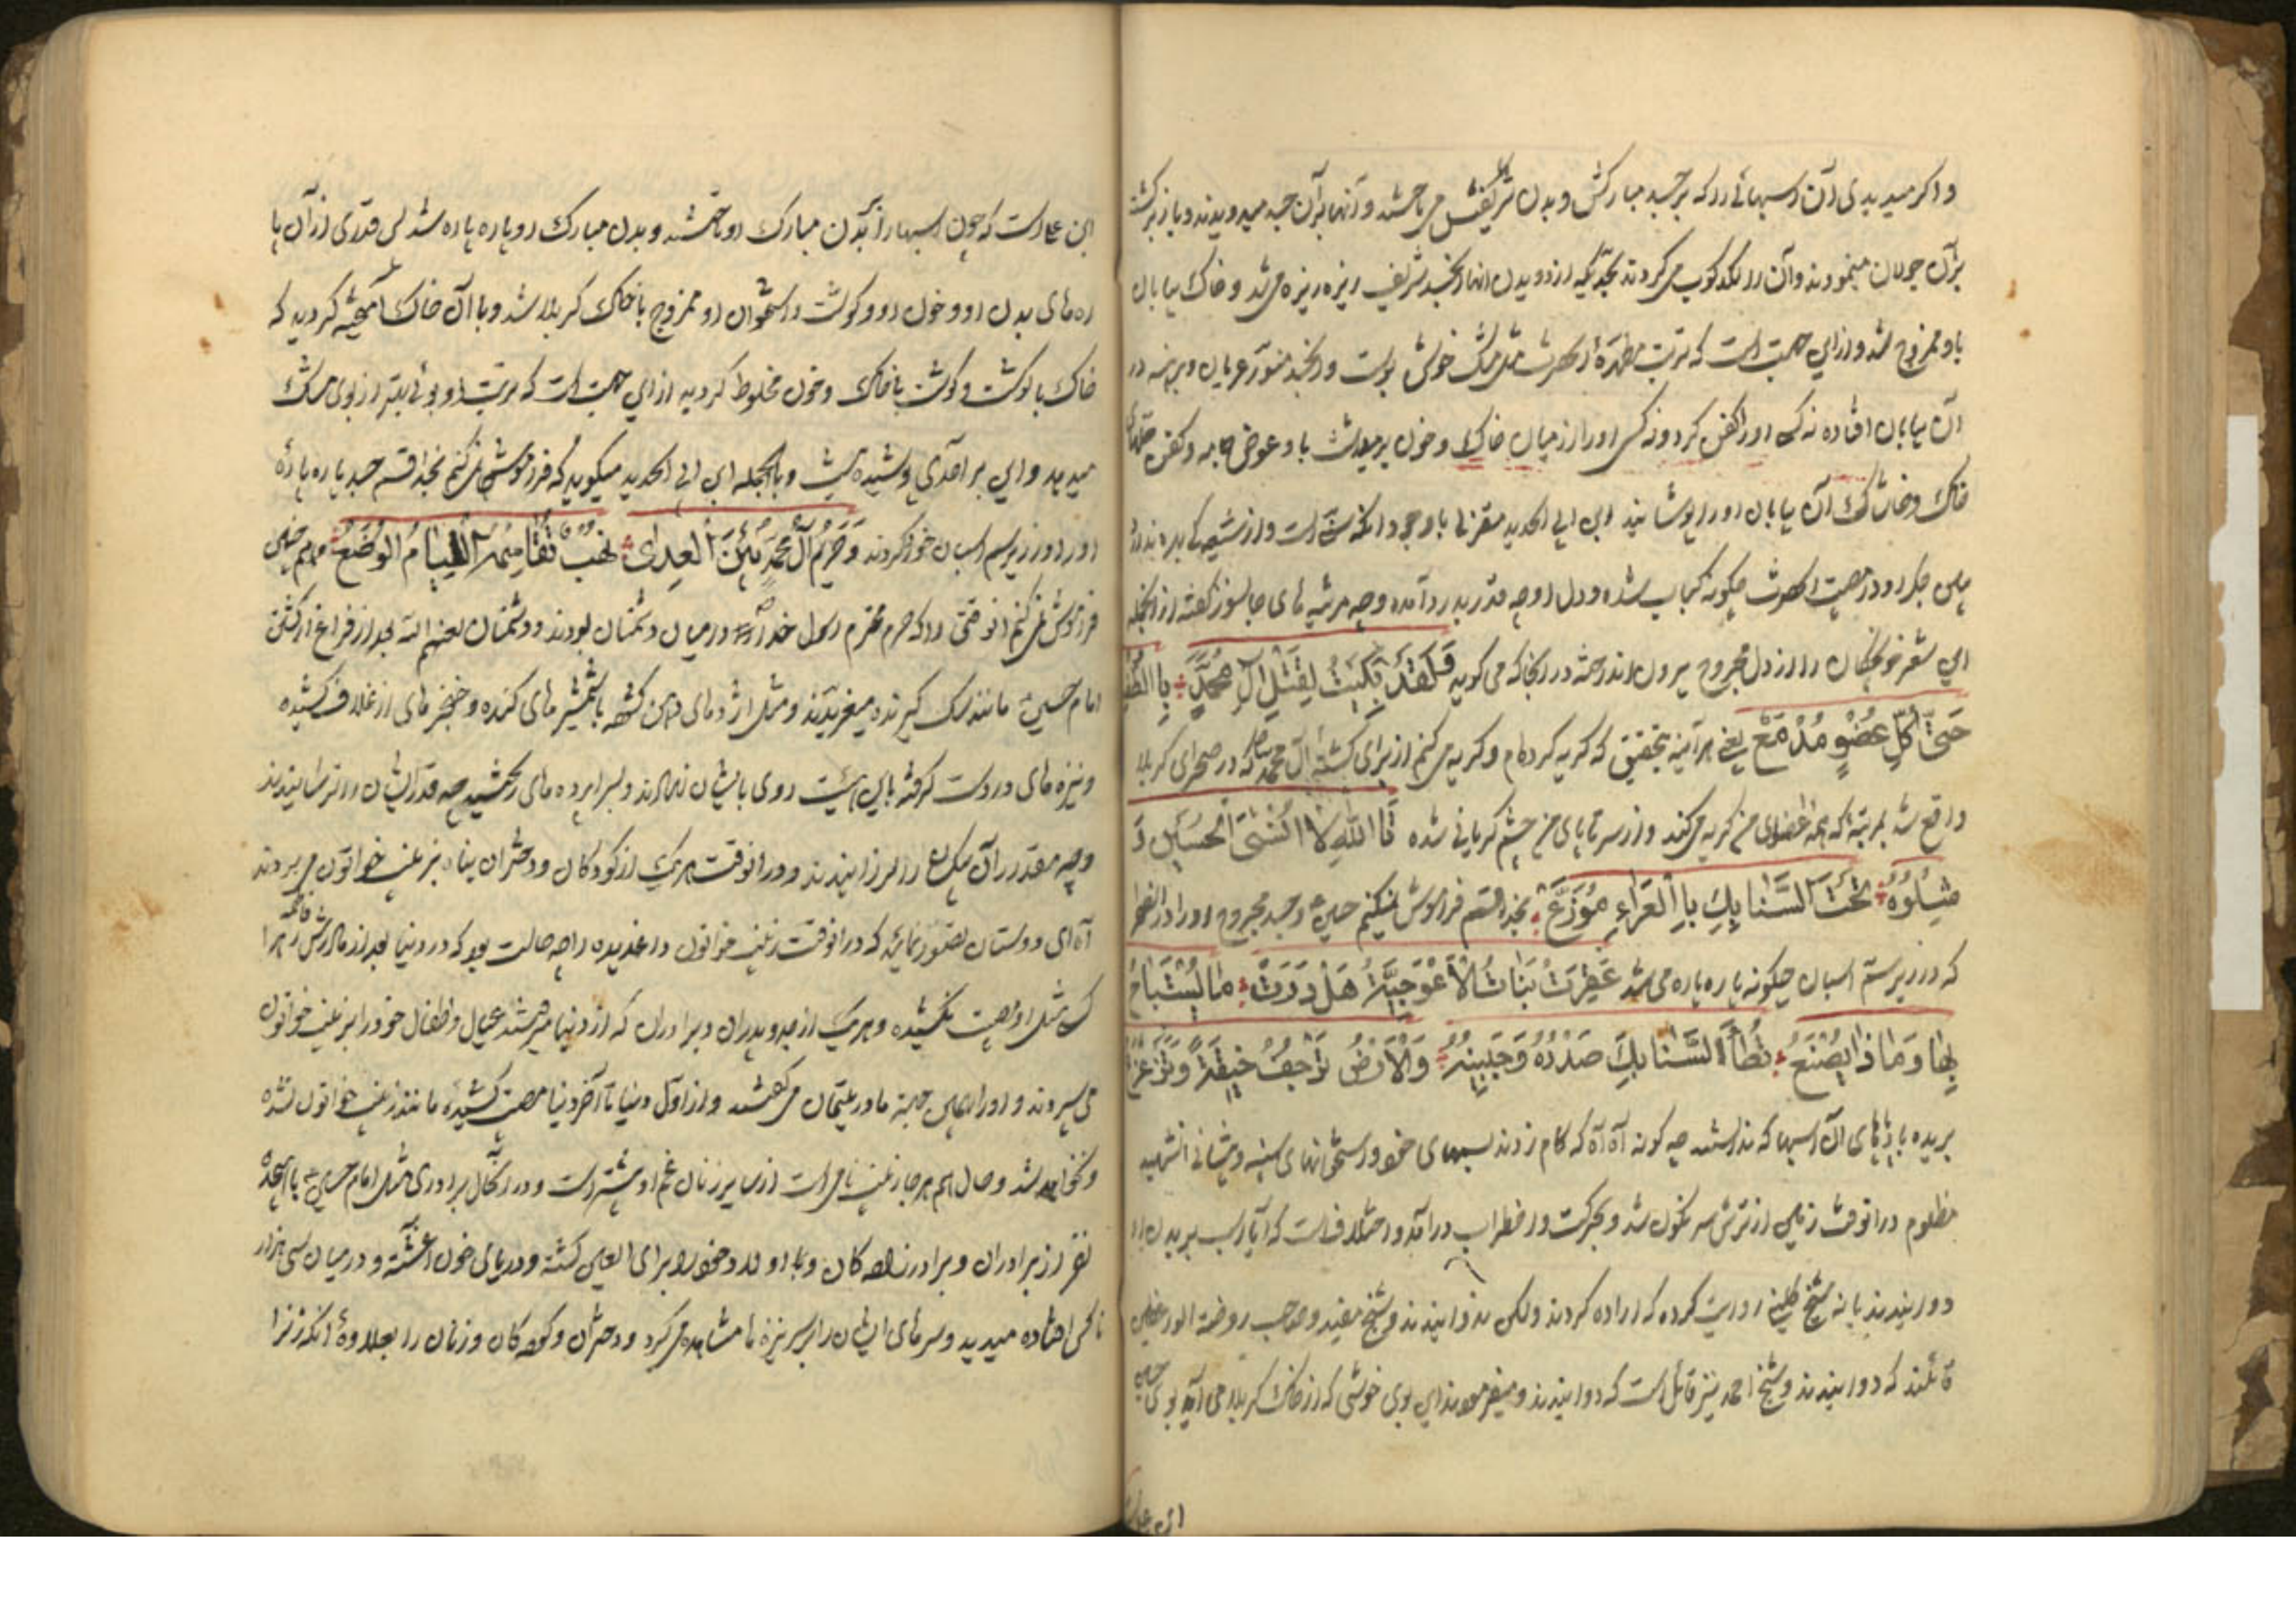 واکر میدیدی آن اسبهائی را که بر جسد مبارکش و بدن شریفش می تاختند و آنها بر آن جسد میدویدند و باز برکشته
بر آن جولان مینمودند و آن را لکدکوب می کردند بحدیکه از دویدن آنها آن جسد شریف ریزه ریزه می شد و خاک بیابان
باو ممزوج شد و از این جهت است که تربت مطهرۀ آنحضرت مثل مشک خوش بوست و آن جسد منور عریان و برهنه در
آن بیابان افتاده نه کسی او را کفن کرد و نه کسی او را از میان خاک و خون برمیداشت باد عوض جامه و کفن
خاک و خاشاک آن بیابان او را پوشانید ابن ابی الحدید معتزلی با وجود آنکه سنی است و از شیعه
ببین جکر او در مصیبت آنحضرت چکونه کباب شده و دل او چه قدر بدرد آمده و چه مرثیه های جانسوز کفته از آنجمله
این شعر خونچکان را از دل مجروح بیرون انداخته در آنجا که می کوید فَلَقَدْ بَکَیْتُ لِقَتْلِ آلِ مُحَمَّدٍ بِاالطَّفِّ
حَتّیٰ کُلِّ عُضْوٍ مُدْمَعٌ یعنی هر آینه بتحقیق که کریه کرده ام و کریه می کنم از برای کشتۀ آل محمد که در صحرای کربلا
واقع شد بمرتبۀ که همه اعضای من کریه می کند و از سر تا پای من چشم کریانی شده تَااللّٰهِ لا انسَیٰ الحُسَیْنَ وَ
شِلْوُهُ تَحْتَ السَّنابِكِ بِاالْعَراءِ مُوَزَّعٌ بخدا قسم فراموش نمیکنم حسین و جسد مجروح او را در آن صحرا
که در زیر ستم اسبان چکونه پاره پاره می شد عَقِرَتْ بَناتُ الْاَعْوَجِیَّةُ هَلْ دَرَتْ ما یُسْتَباحُ
بِها وَ ماذا یُصْنَعُ تُطَأُ السَّنابِكَ صَدْرُهُ وَ جَبینُهُ وَالْاَرْضُ تَرْجُفُ خیفَةً وَ تَزَعْزَعُ
بریده باد پاهای آن اسبها که ندانستند چه کونه آه آه که کام زدند سمهای خود و استخوانهای سینه و پیشانی آن شهید
مظلوم در آنوقت زمین از ترس سر نکون شد و بحرکت و اضطراب در آمد و اختلاف است که آیا اسب بر بدن او
دوانیدند یا نه شیخ کلینی روایت کرده که اراده کردند ولکن ندوانیدند و شیخ مفید و صاحب روضة الواعظین
قائلند که دوانیدند و شیخ احمد نیز قائل است که دوانیدند و میفرمودند این بوی خوشی که از خاک کربلا می آید بوی
ابن عبا
این است که چون اسبها را بر بدن مبارک او تاختند و بدن مبارک او پاره پاره شد پس قدری از آن پا
ره های بدن او و خون او و کوشت و استخوان او ممزوج با خاک کربلا شد و با آن خاک آمیخته کردید که
خاک با کوشت و کوشت با خاک و خون مخلوط کردید از این جهت است که تربت او بوئی بهتر از بوی مشک
میدهد و این بر احدی پوشیده نیست و بالجمله ابن ابی الحدید میکوید که فراموش نمی کنم بخدا قسم جسد پاره پارۀ
او را در زیر سم اسبان خورد کردند وَ حَریمُ آلُ مُحَمَّدٍ بَیْنَ الْعِدیٰ نَهْبٌ تُقَاسِمُهُ اللِّیامُ الْوُضَّعُ و هم چنین
فراموش نمی کنم آنوقتی را که حرم محترم رسول خدا در میان دشمنان بودند و دشمنان لعنهم الله بعد از فراغ از کشتن
امام حسین مانند سک کیرنده میغریدند و مثل اژدهای دهن کشوده با شمشیرهای کنده و خنجرهای از غلاف کشیده
و نیزه های در دست کرفته باین هیئت روی بایشان نهادند و بسراپرده های ریختند چه قدر ایشان را ترسانیدند
و چه مقدر ارکان را لرزانیدند و در آنوقت هر یک از کودکان و دختران پناه بزینب خواتون می بردند
آه ای دوستان تصور نمائید که در آنوقت زینب خواتون داغدیده را چه حالت بود که در دنیا بعد از مادرش فاطمه زهرا
کسی مثل او مصیبت نکشیده و هر یک از جد و پدران و برادران که از دنیا میرفتند عیال و اطفال خود را بزینب خواتون
می سپردند و او را باین جهة مادر یتیمان می کفتند و از اول دنیا تا آخر دنیا مصیبت کشیده مانند زینب خواتون نشده
و نخواهد شد و حال هم هر جا زینب نامی است از سایر زنان غم او بیشتر است و در آنحال برادری مثل امام حسین با هجده
نفر از برادران و برادر زاده کان و با اولاد خود را برای العین کشته و در دریای خون آغشته و در میان سی هزار
ناکس افتاده میدید و سرهای ایشان را بر سر نیزه ها مشاهده می کرد و دختران و کودکان و زنان را بعلاوۀ آنکه